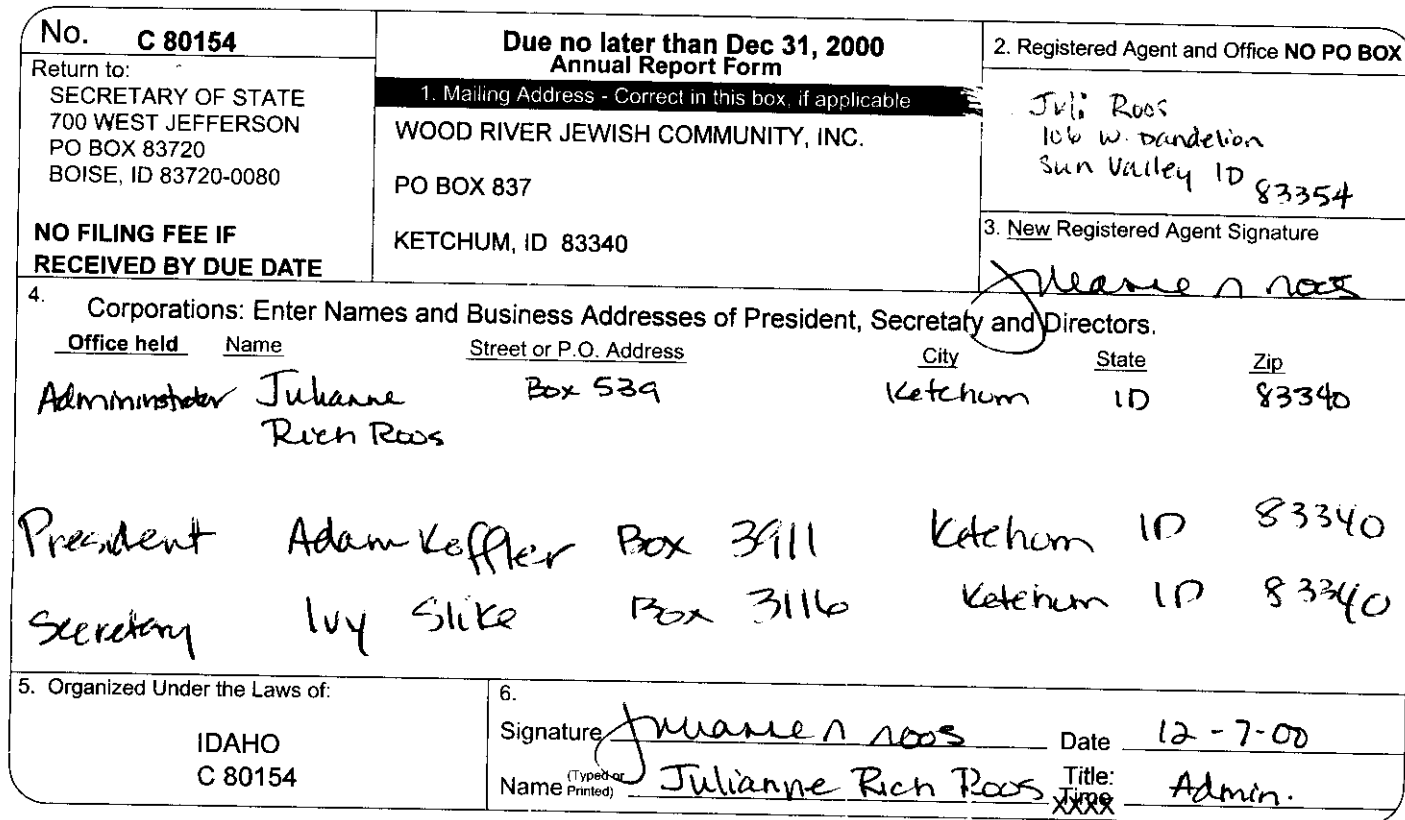 No. C 80154
Return to:
SECRETARY OF STATE
700 WEST JEFFERSON
PO BOX 83720
BOISE, ID 83720-0080
NO FILING FEE IF
RECEIVED BY DUE DATE
Due no later than Dec 31, 2000
Annual Report Form
1. Mailing Address - Correct in this box, if applicable
WOOD RIVER JEWISH COMMUNITY, INC.
PO BOX 837
KETCHUM, ID 83340
2. Registered Agent and Office NO PO BOX
Juli Roos
106 W. Dandelion
Sun Valley ID 83354
3. New Registered Agent Signature
4. Corporations: Enter Names and Business Addresses of President, Secretary and Directors.
Office held Name Street or P.O. Address City State Zip
Julianne Box 539 Ketchum ID 83340
Rich Roos
President Adam Koffler Box 3911 Ketchum ID 83340
Secretary Ivy Slike Box 3116 Ketchum ID 83340
5. Organized Under the Laws of:
IDAHO
C 80154
6.
Signature Date 12-7-00
Name (Typed or Printed) Julianne Rich Roos Title: Admin.